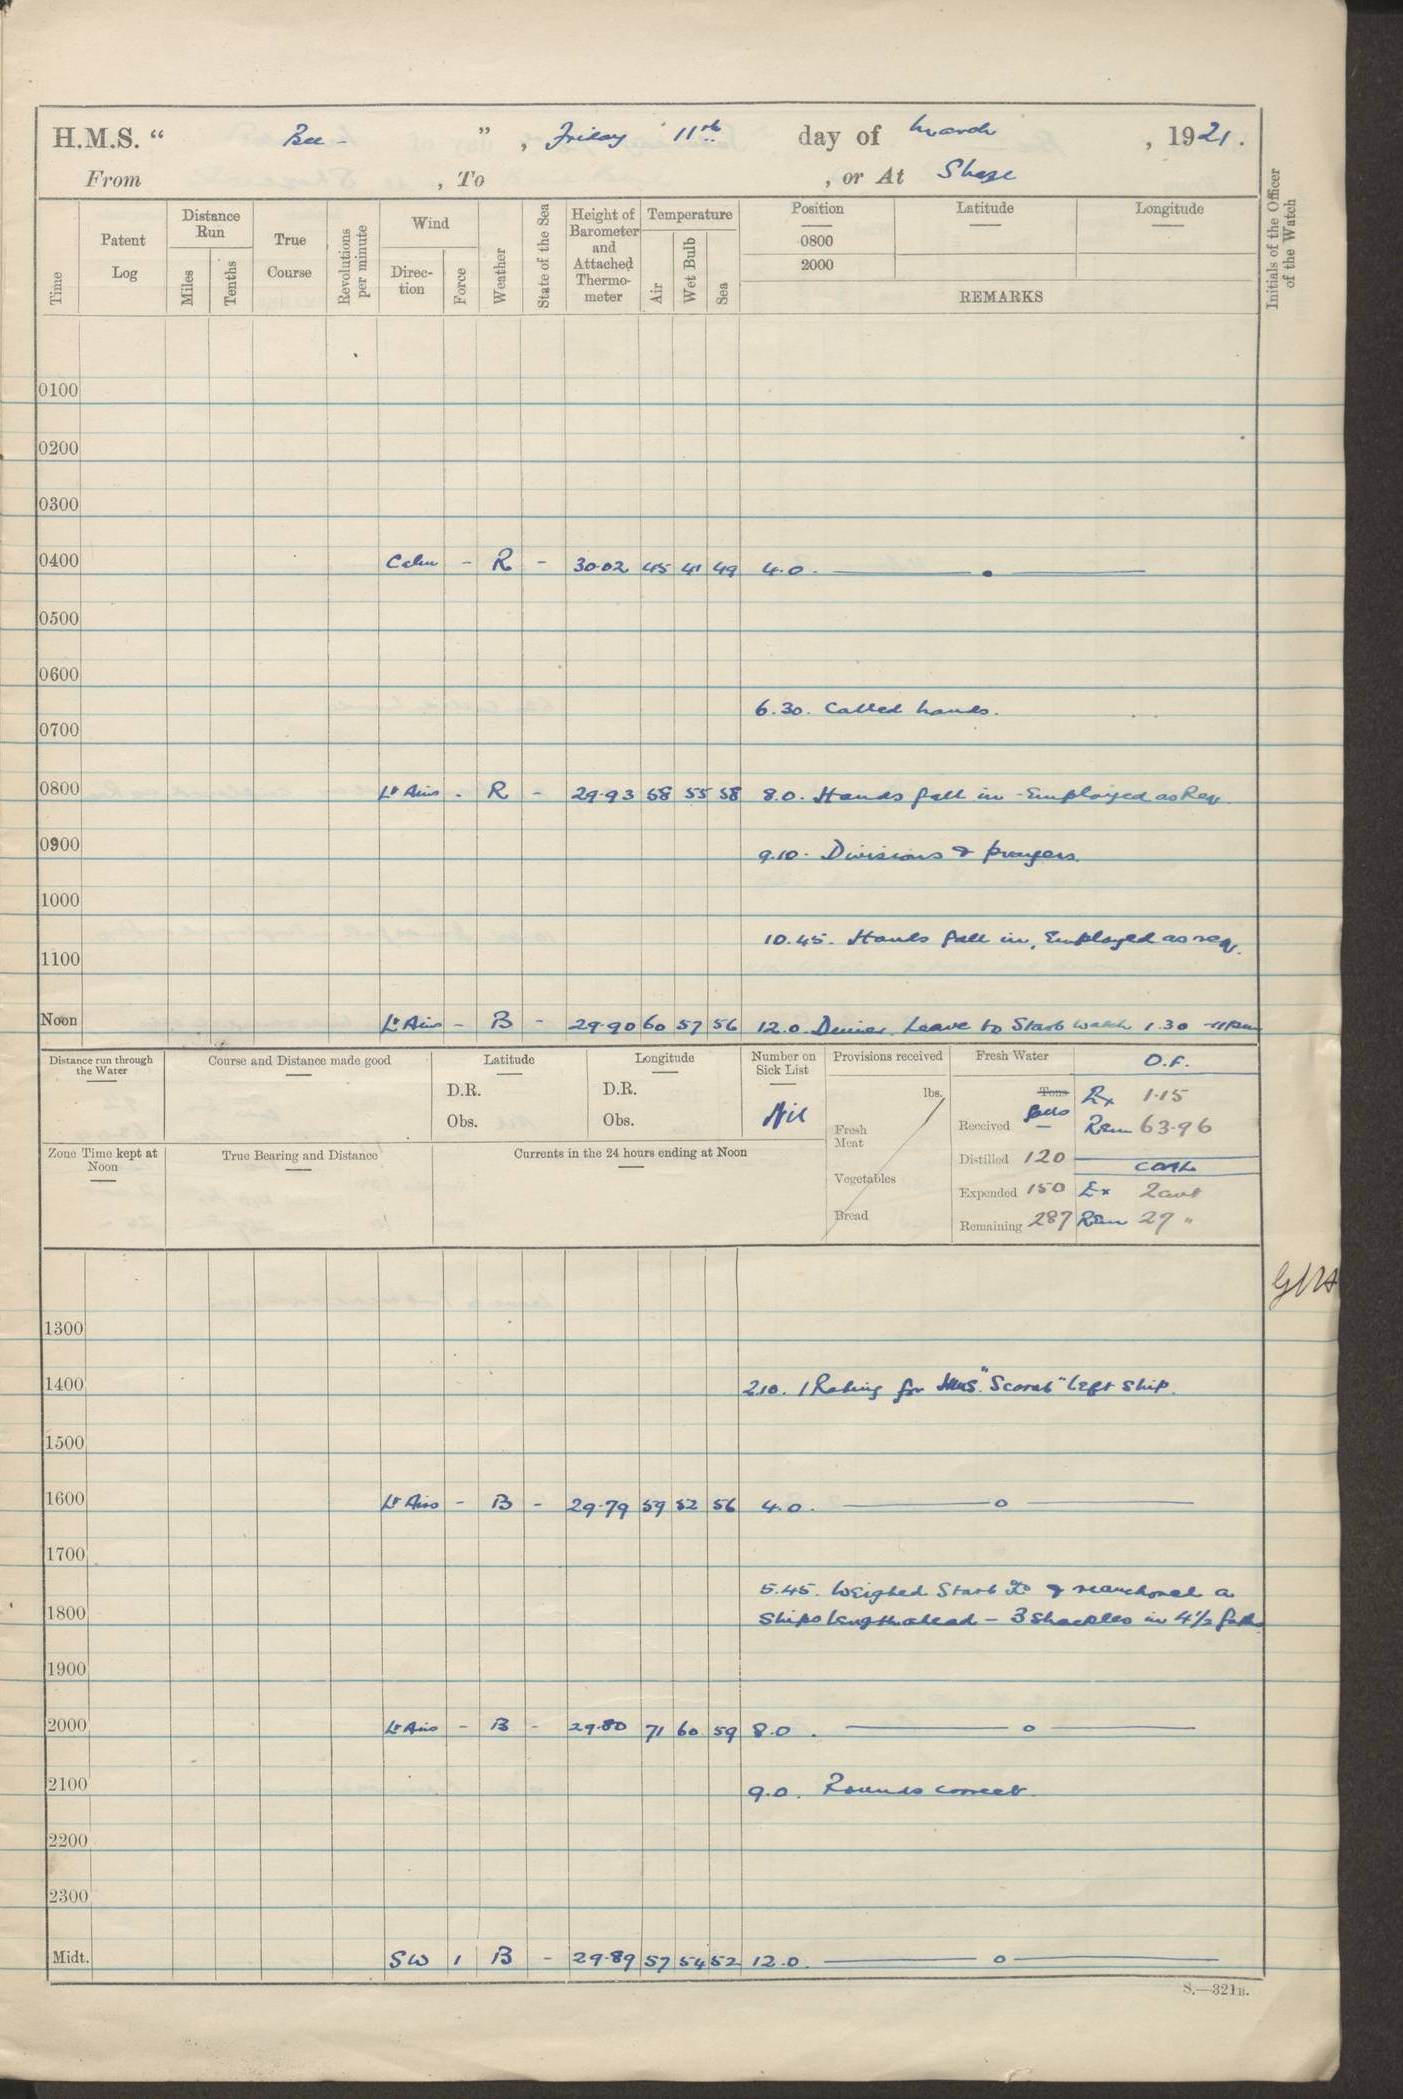 H.M.S. “ Bee - ” , Friday 11th day of March , 1921.
From , To , or At Shasi
Time
Patent Log
Distance Run
Miles
Tenths
True Course
Revolutions per minute
Wind
Direc- tion
Force
Weather
State of the Sea
Height of Barometer and Attached Thermo- meter
Temperature
Air
Wet Bulb
Sea
Position
0800
2000
Latitude
Longitude
REMARKS
Initials of the Officer of the Watch
0100
0200
0300
0400 Calm - R - 30.02 45 41 49 4.0.
0500
0600
6.30. Called hands.
0700
0800 Lt Airs - R - 29.93 58 55 58 8.0. Hands fall in - Employed as Req.
0900
9.10. Divisions & prayers.
1000
10.45. Hands fall in, Employed as req.
1100
Noon Lt Airs - B - 29.90 60 57 56 12.0. Dinner. Leave to Starb watch 1.30 - 11pm
Distance run through the Water
Course and Distance made good
Latitude
D.R.
Obs.
Longitude
D.R.
Obs.
Number on Sick List
Nil
Provisions received
lbs.
Fresh Meat
Vegetables
Bread
Fresh Water
Tons
galls
Received -
Distilled 120
Expended 150
Remaining 287
O.F.
Ex 1.15
Rem 63.96
COAL
Ex 2 cwt
Rem 29 "
Zone Time kept at Noon
True Bearing and Distance
Currents in the 24 hours ending at Noon
1300
1400
2.10. 1 Rating for HMS "Scarab" left ship.
1500
1600 Lt Airs - B - 29.79 59 52 56 4.0.
1700
5.45. Weighed Starb & reanchored a
1800 Ships length ahead - 3 shackles in 4½ faths
1900
2000 Lt Airs - B - 29.80 71 60 59 8.0.
2100
9.0. Rounds correct
2200
2300
Midt. SW 1 B - 29.89 57 54 52 12.0.
S.—321B.